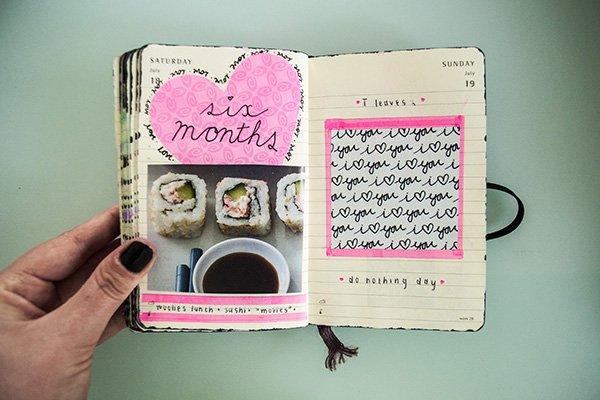 SATURDAY
July
18
six
months
woolies lunch • sushi • "movies" •
SUNDAY
July
19
♥ T leaves :( ♥
i ♡ you i ♡ you i
♡ you i ♡ you i ♡
you i ♡ you i ♡ you
i ♡ you i ♡ you i
♡ you i ♡ you i ♡
you i ♡ you i ♡ you
i ♡ you i ♡ you i
♡ you i ♡ you i ♡
♥ do nothing day ♥